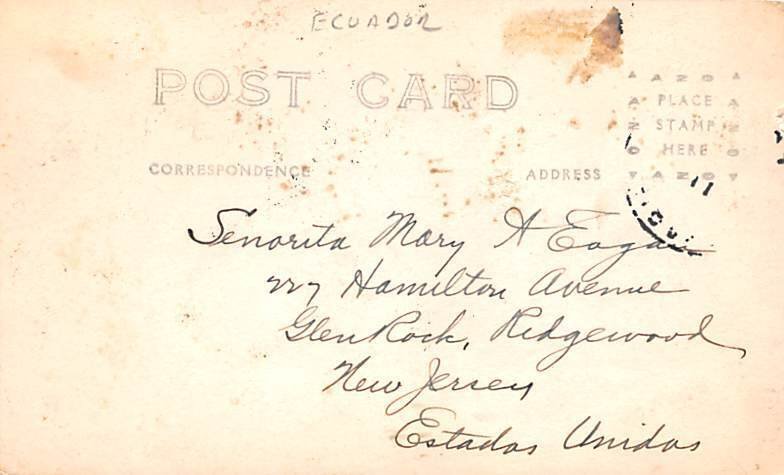 ECUADOR
POST CARD
AZO
PLACE
STAMP
HERE
AZO
CORRESPONDENCE
ADDRESS
11
Senorita Mary A
227 Hamilton Avenue
Glen Rock, Ridgewood
New Jersey
Estados Unidos